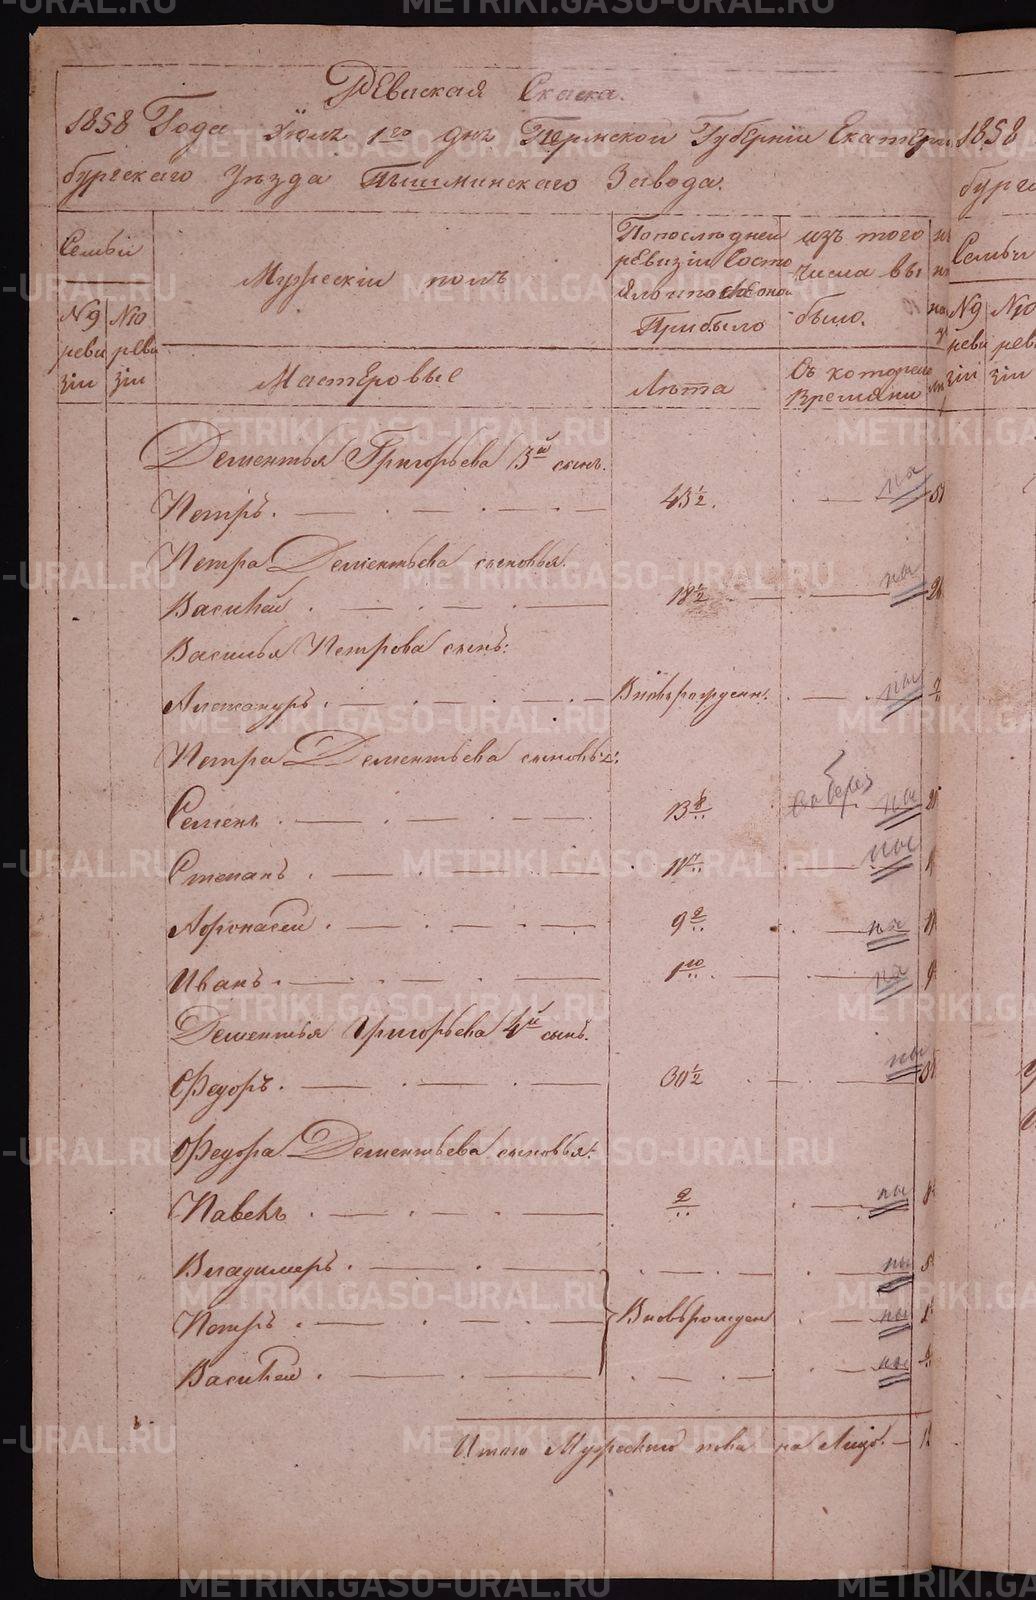 Ревиская Скаска.
1858 Года Іюля 1го дня Пермской Губерніи Екатерин
бургскаго Уѣзда Пышминскаго Завода.
Семьи
№ 9 реви зіи
№ 10 реви зіи
Мужескій полъ
Мастеровые
По послѣдней
ревизіи состо
яло и после оной
Прибыло
Лѣта
изъ того
числа вы
было.
Съ котораго
Времяни
Дементья Григорьева 3й сынъ.
Петръ. 43 1/2. на
Петра Дементьева сыновья.
Василей. 18 1/2 на
Василья Петрова сынъ:
Александръ. Вновьрожден. на
Петра Дементьева сыновья:
Семенъ. 13 на
Степанъ. 11 на
Афонасей. 9 на
Иванъ. 1го на
Дементья Григорьева 4й сынъ.
Федоръ. 30 1/2 на
Федора Дементьева сыновья:
Павелъ. 2 на
Владимеръ. на
Петръ. Вновьрожден на
Василей. на
Итого Мужеского пола на Лицо.
1858
бургс
Семьи
№ 9 реви зіи
№ 10 реви зіи
METRIKI.GASO-URAL.RU